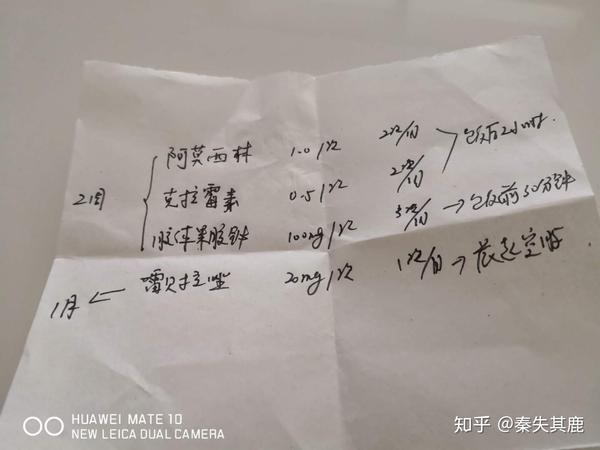 阿莫西林 1.0/次 2次/日 饭后2小时.
2周 克拉霉素 0.5/次 2次/日
胶体果胶铋 100mg/次 3次/日 → 饭前30分钟
1月 ← 雷贝拉唑 20mg/次 1次/日 → 晨起空腹
HUAWEI MATE 10
NEW LEICA DUAL CAMERA
知乎 @秦失其鹿